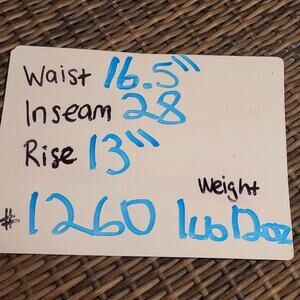 Waist 16.5"
Inseam 28
Rise 13"
Weight
#1260 1lb 12oz